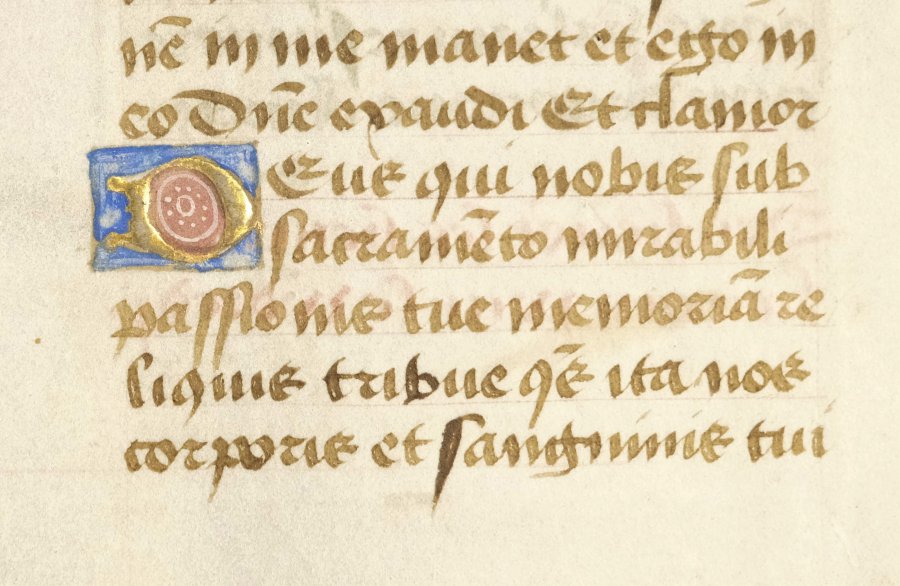 nē in me manet et ego in
eo Dn̄e exaudi Et clamor
Deus qui nobis sub
sacramēto mirabili
passionis tue memoriā re
liquis tribue q̄s ita nos
corporis et sanguinis tui